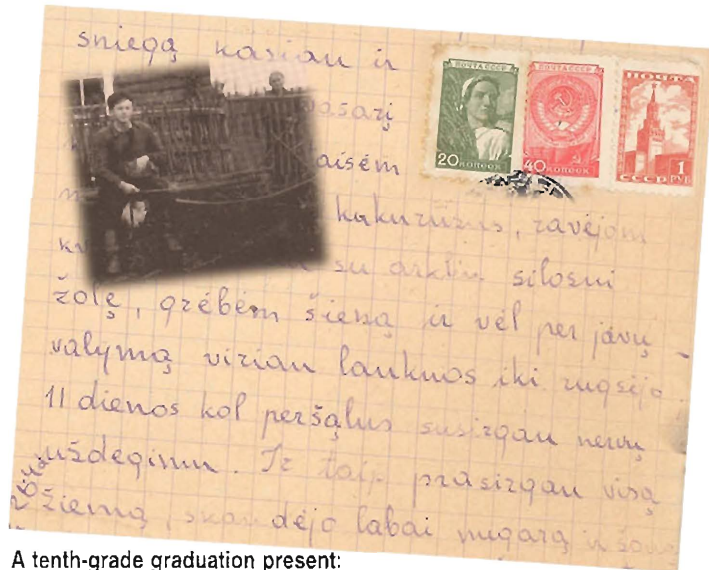 sniegą kasiau ir
vasarį
aisėm
kukurūzus, ravėjom
su arkliu silosui
žolę, grėbėm šieną ir vėl per javų
valymą viriau laukuos iki rugsėjo
11 dienos kol peršąlus susirgau nervų
uždegimu. Ir taip prasirgau visą
žiemą, skaudėjo labai nugarą ir
ПОЧТА СССР
20 КОПЕЕК
ПОЧТА СССР
40 КОПЕЕК
ПОЧТА
СССР
1
РУБ
A tenth-grade graduation present: